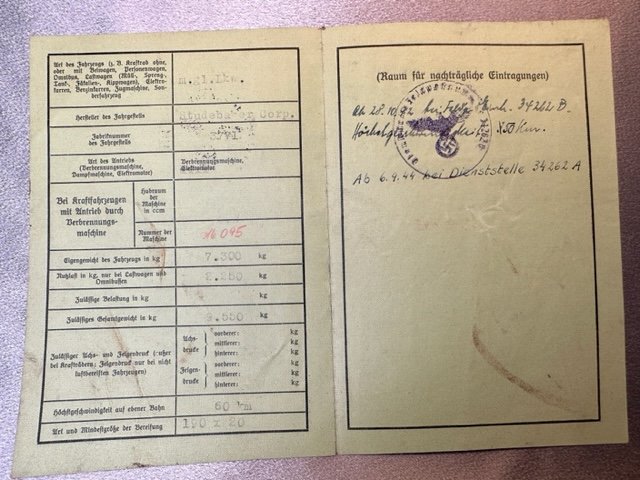 Art des Fahrzeugs (z. B. Kraftrad ohne
oder mit Beiwagen, Personenwagen,
Omnibus, Lastwagen (Müll-, Spreng-,
Tank-, Fäkalien-, Kippwagen), Elektro-
karren, Benzinkarren, Zugmaschine, Son-
derfahrzeug
m.gl.Lkw.
Hersteller des Fahrgestells
Corp.
Fabriknummer
des Fahrgestells
Art des Antriebs
(Verbrennungsmaschine,
Dampfmaschine, Elektromotor)
Verbrennungsmaschine,
Elektromotor
Bei Kraftfahrzeugen
mit Antrieb durch
Verbrennungs-
maschine
Hubraum
der
Maschine
in ccm
Nummer der
Maschine
16 095
Eigengewicht des Fahrzeugs in kg
7.300 kg
Nutzlast in kg, nur bei Lastwagen und
Omnibussen
2.250 kg
Zulässige Belastung in kg
kg
Zulässiges Gesamtgewicht in kg
9.550 kg
Zulässiger Achs- und Felgendruck (außer
bei Krafträdern; Felgendruck nur bei nicht
luftbereiften Fahrzeugen)
Achs-
drucke
vorderer: kg
mittlerer: kg
hinterer: kg
Felgen-
drucke
vorderer: kg
mittlerer: kg
hinterer: kg
Höchstgeschwindigkeit auf ebener Bahn
60 km
Art und Mindestgröße der Bereifung
190 x 20
(Raum für nachträgliche Eintragungen)
Ab 28.10.42 bei 34262 B.
Ab 6.9.44 bei Dienststelle 34262 A